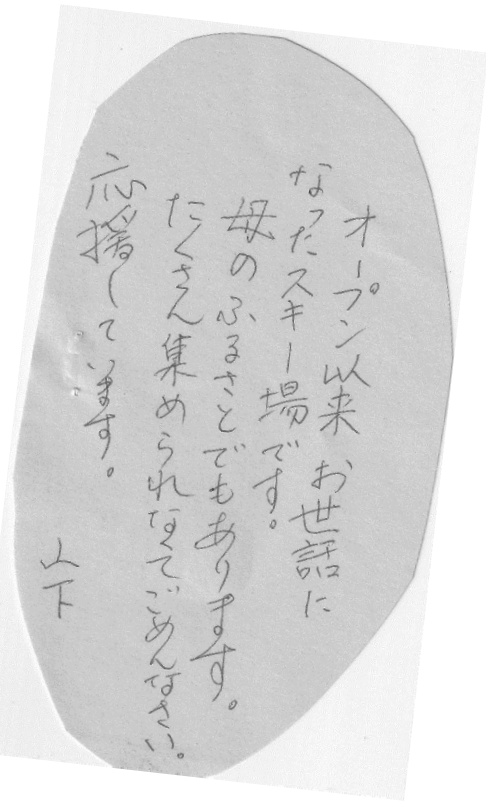 オープン以来 お世話に
なったスキー場です。
母のふるさとでもあります。
たくさん集められなくてごめんなさい。
応援しています。
山下